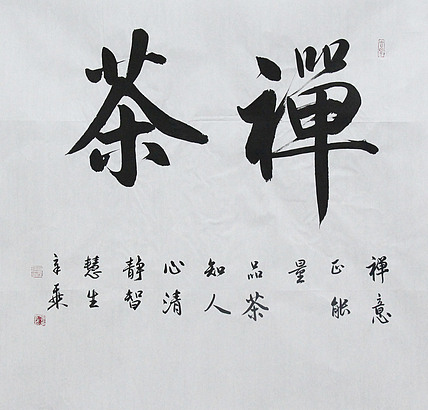 禪茶
禪意
正能
量
品茶
知人
心清
靜智
慧生